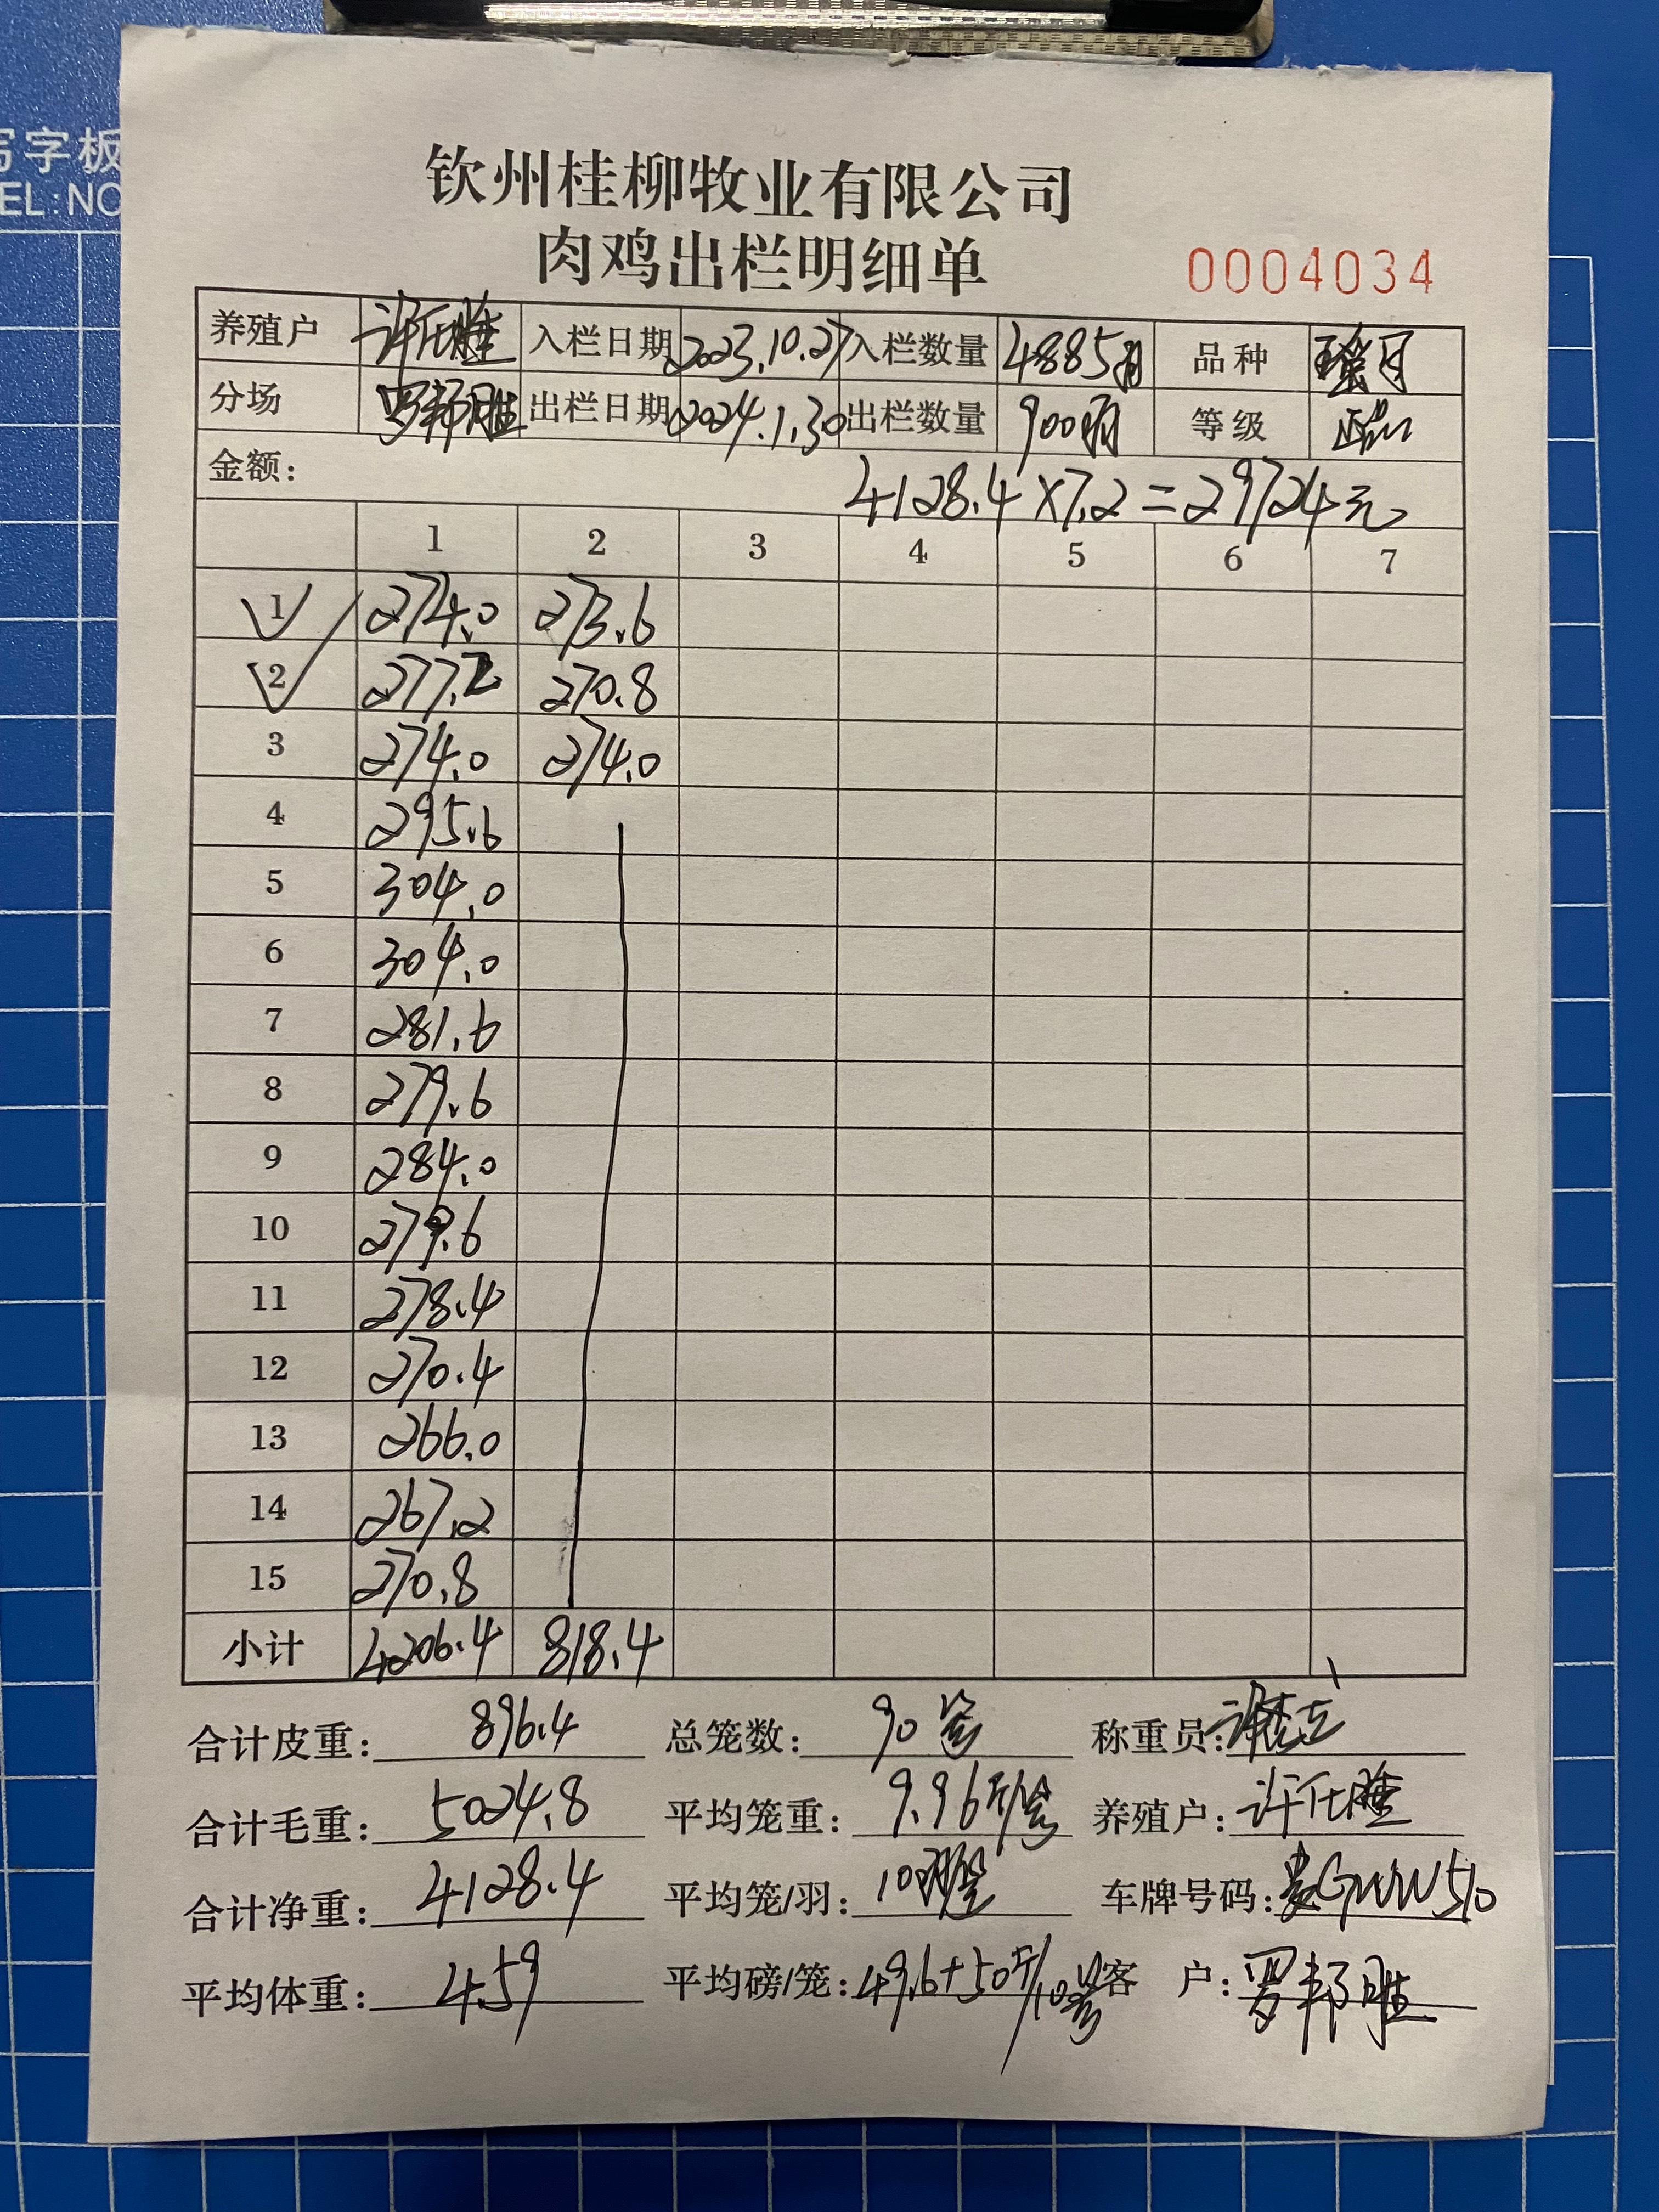 写字板
EL:NO
钦州桂柳牧业有限公司
肉鸡出栏明细单 0004034
养殖户 许仕胜 入栏日期 2023.10.27 入栏数量 4885羽 品种 瑶月
分场 罗邦胜 出栏日期 2024.1.30 出栏数量 900羽 等级 正品
金额: 4128.4×7.2=29724元
1 2 3 4 5 6 7
1 274.0 273.6
2 277.2 270.8
3 274.0 274.0
4 295.6
5 304.0
6 304.0
7 281.6
8 279.6
9 284.0
10 279.6
11 278.4
12 270.4
13 266.0
14 267.2
15 270.8
小计 4206.4 818.4
合计皮重: 896.4 总笼数: 90笼 称重员:
合计毛重: 5024.8 平均笼重: 9.96斤/笼 养殖户: 许仕胜
合计净重: 4128.4 平均笼/羽: 10羽/笼 车牌号码:
平均体重: 4.59 平均磅/笼: 49.6+50斤/10笼 客 户: 罗邦胜